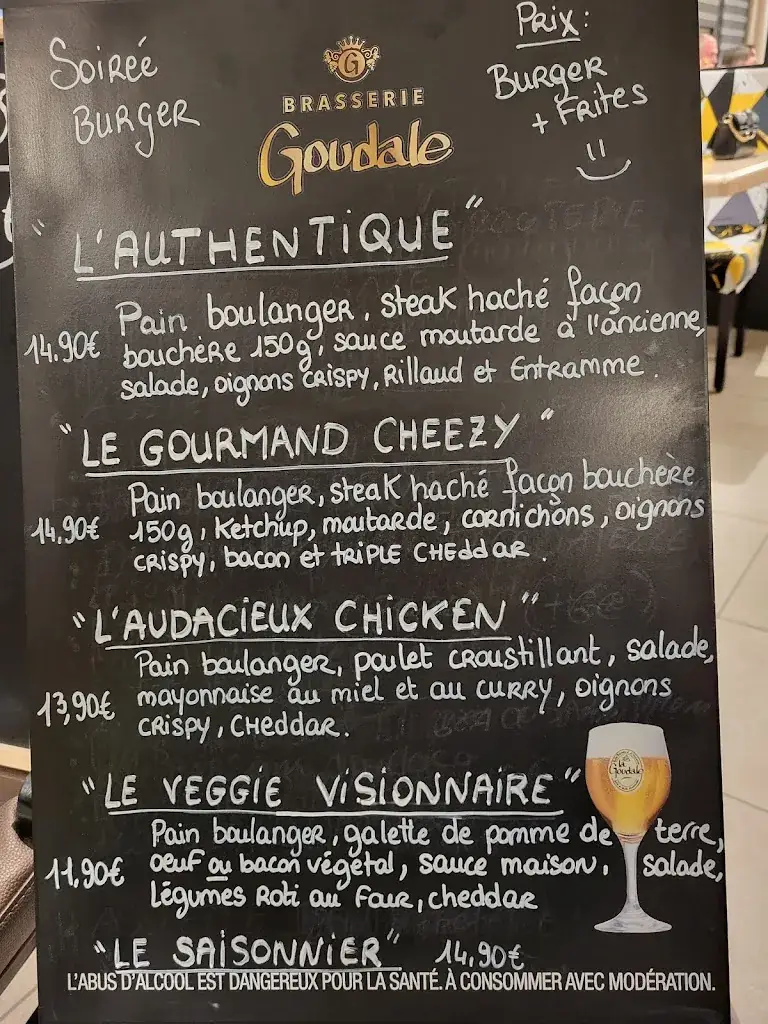 Soirée
Burger
G
BRASSERIE
Goudale
Prix:
Burger
+ Frites
"L'AUTHENTIQUE"
Pain boulanger, steak haché façon
14.90€ bouchère 150g, sauce moutarde à l'ancienne,
salade, oignons crispy, Rillaud et Entramme.
"LE GOURMAND CHEEZY"
Pain boulanger, steak haché façon bouchère
14,90€ 150g, Ketchup, moutarde, cornichons, oignons
crispy, bacon et TRIPLE CHEddar.
"L'AUDACIEUX CHICKEN"
Pain boulanger, poulet croustillant, salade,
13,90€ mayonnaise au miel et au curry, oignons
crispy, cheddar.
"LE VEGGIE VISIONNAIRE"
Pain boulanger, galette de pomme de terre,
11,90€ oeuf ou bacon végétal, sauce maison, salade,
légumes Roti au Four, cheddar
la Goudale
"LE SAISONNIER" 14,90€
L'ABUS D'ALCOOL EST DANGEREUX POUR LA SANTÉ. À CONSOMMER AVEC MODÉRATION.